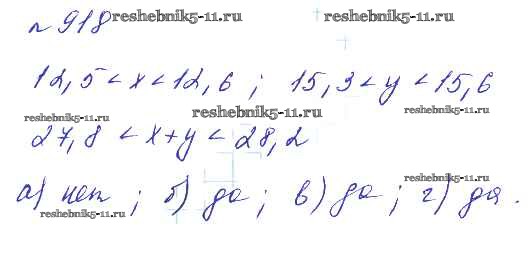 № 918 reshebnik5-11.ru reshebnik5-11.ru
12,5 < x < 12,6 ; 15,3 < y < 15,6
reshebnik5-11.ru reshebnik5-11.ru reshebnik5-11.ru
27,8 < x+y < 28,2
а) нет ; б) да ; в) да ; г) да .
reshebnik5-11.ru reshebnik5-11.ru